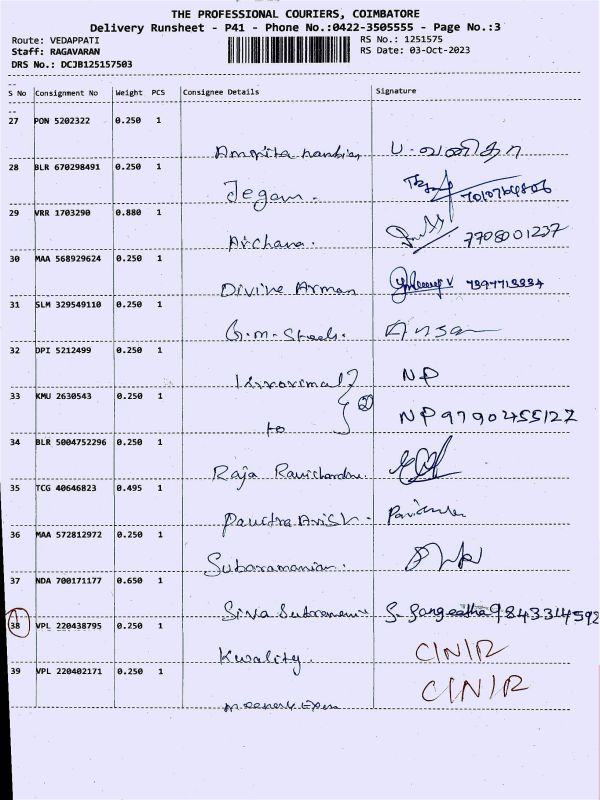 THE PROFESSIONAL COURIERS, COIMBATORE
Delivery Runsheet - P41 - Phone No.:0422-3505555 - Page No.:3
Route: VEDAPPATI RS No.: 1251575
Staff: RAGAVARAN RS Date: 03-Oct-2023
DRS No.: DCJB125157503
S No Consignment No Weight PCS Consignee Details Signature
27 PON 5202322 0.250 1
28 BLR 670298491 0.250 1
Jegan.
29 VRR 1703290 0.880 1
Archana. 7708001237
30 MAA 568929624 0.250 1
Divine Arman
31 SLM 329549110 0.250 1
G.M. Steels. Ansar
32 DPI 5212499 0.250 1
NP
33 KMU 2630543 0.250 1
to NP 9790455127
34 BLR 5004752296 0.250 1
Raja
35 TCG 40646823 0.495 1
36 MAA 572812972 0.250 1
Subaramanian.
37 NDA 700171177 0.650 1
Siva S. Sangeetha 9843314592
38 VPL 220438795 0.250 1
Kwality. C/N/R
39 VPL 220402171 0.250 1
C/N/R